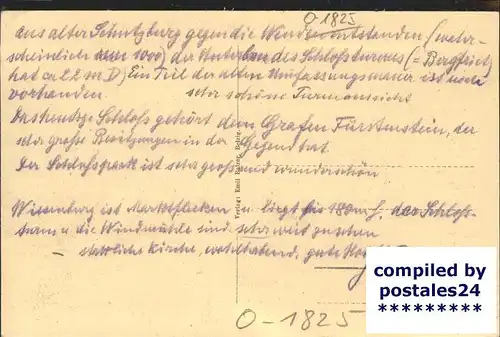 O-1825
aus alter Schutzburg gegen die Wenden entstanden (wahr-
scheinlich um 1000) der Unterbau des Schloßturmes (= Bergfried
hat ca 22 m D) Ein Teil der alten Umfassungsmauer ist noch
vorhanden. sehr schöne Turmaussicht
Das heutige Schloß gehört dem Grafen Fürstenstein, der
sehr große Besitzungen in der Gegend hat.
Der Schloßpark ist sehr groß und wunderschön
Wiesenburg ist Marktflecken u liegt bis 180 m h, der Schloß-
turm u die Windmühle sind sehr weit zu sehen
– stattliche Kirche, wohlhabend, gute
Verlag: Emil
O-1825
compiled by
postales24
*********